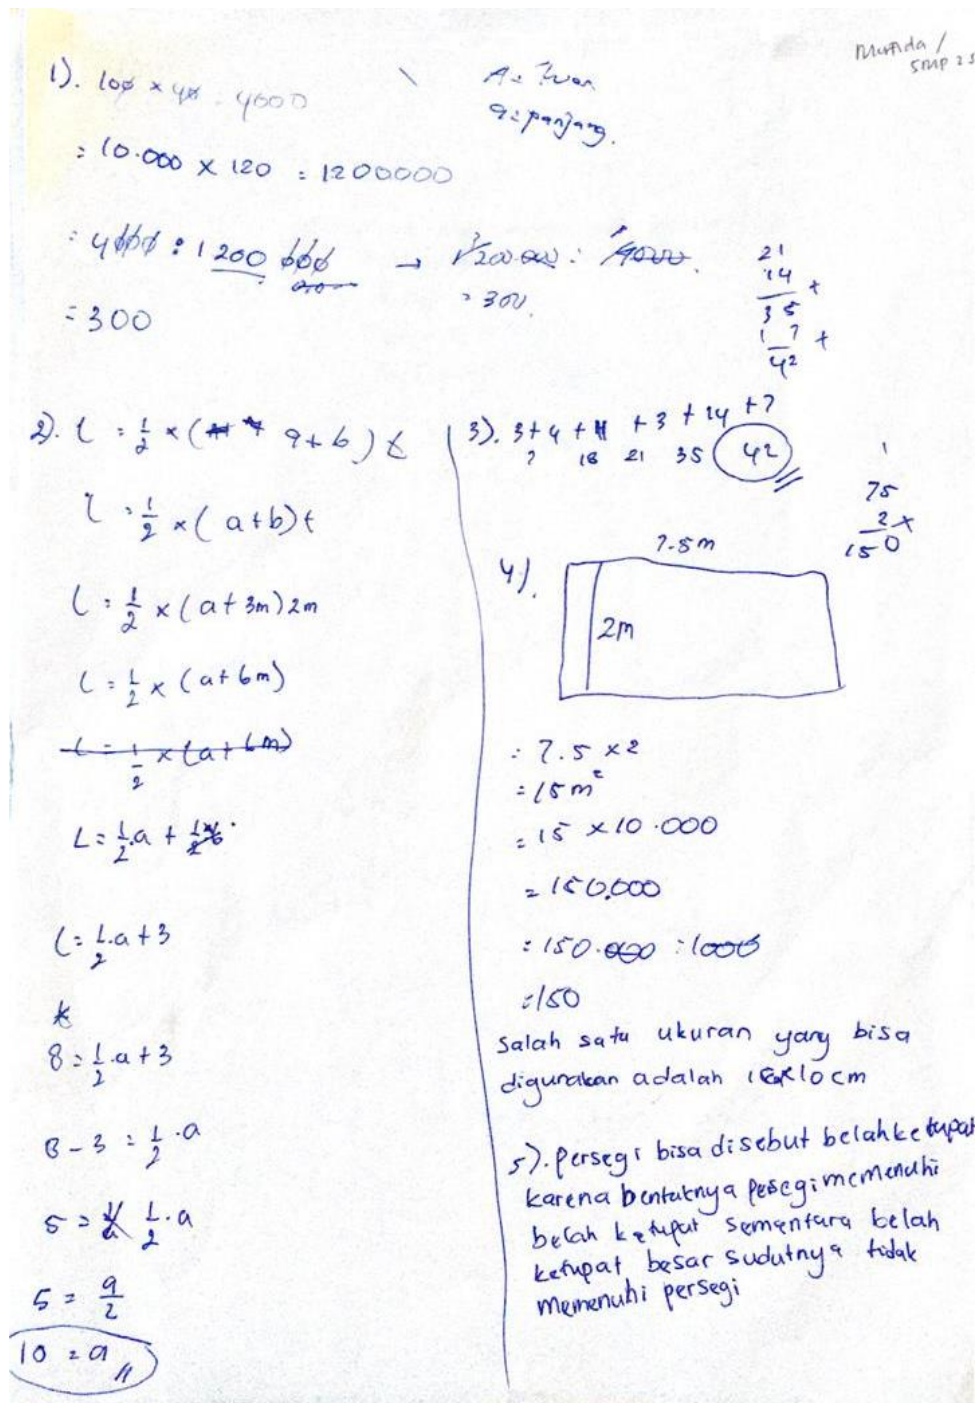 Murfida /
SMP 25
1). 100 x 40 : 4000
A = luas
a = panjang.
= 10.000 x 120 : 1200000
: 4000 : 1200 000 → 1200.000 : 4000
= 300
= 300.
21
14 +
35
7 +
42
2). L = 1/2 x ( a+b ) t
L = 1/2 x ( a+b ) t
L = 1/2 x ( a + 3m ) 2m
L = 1/2 x ( a + 6m )
L = 1/2 x ( a + 6m )
L = 1/2 . a +
L = 1/2 . a + 3
8 = 1/2 . a + 3
8 - 3 = 1/2 . a
5 = 1/2 . a
5 = a/2
10 = a //
3). 3 + 4 + 11 + 3 + 14 + 7
7 18 21 35 42
1
75
2 x
150
4).
7.5m
2m
: 7.5 x 2
= 15 m²
= 15 x 10.000
= 150.000
: 150.000 : 1000
: 150
Salah satu ukuran yang bisa
digunakan adalah 15x10 cm
5). Persegi bisa disebut belahketupat
karena bentuknya pesegi memenuhi
belah ketupat sementara belah
ketupat besar sudutnya tidak
memenuhi persegi